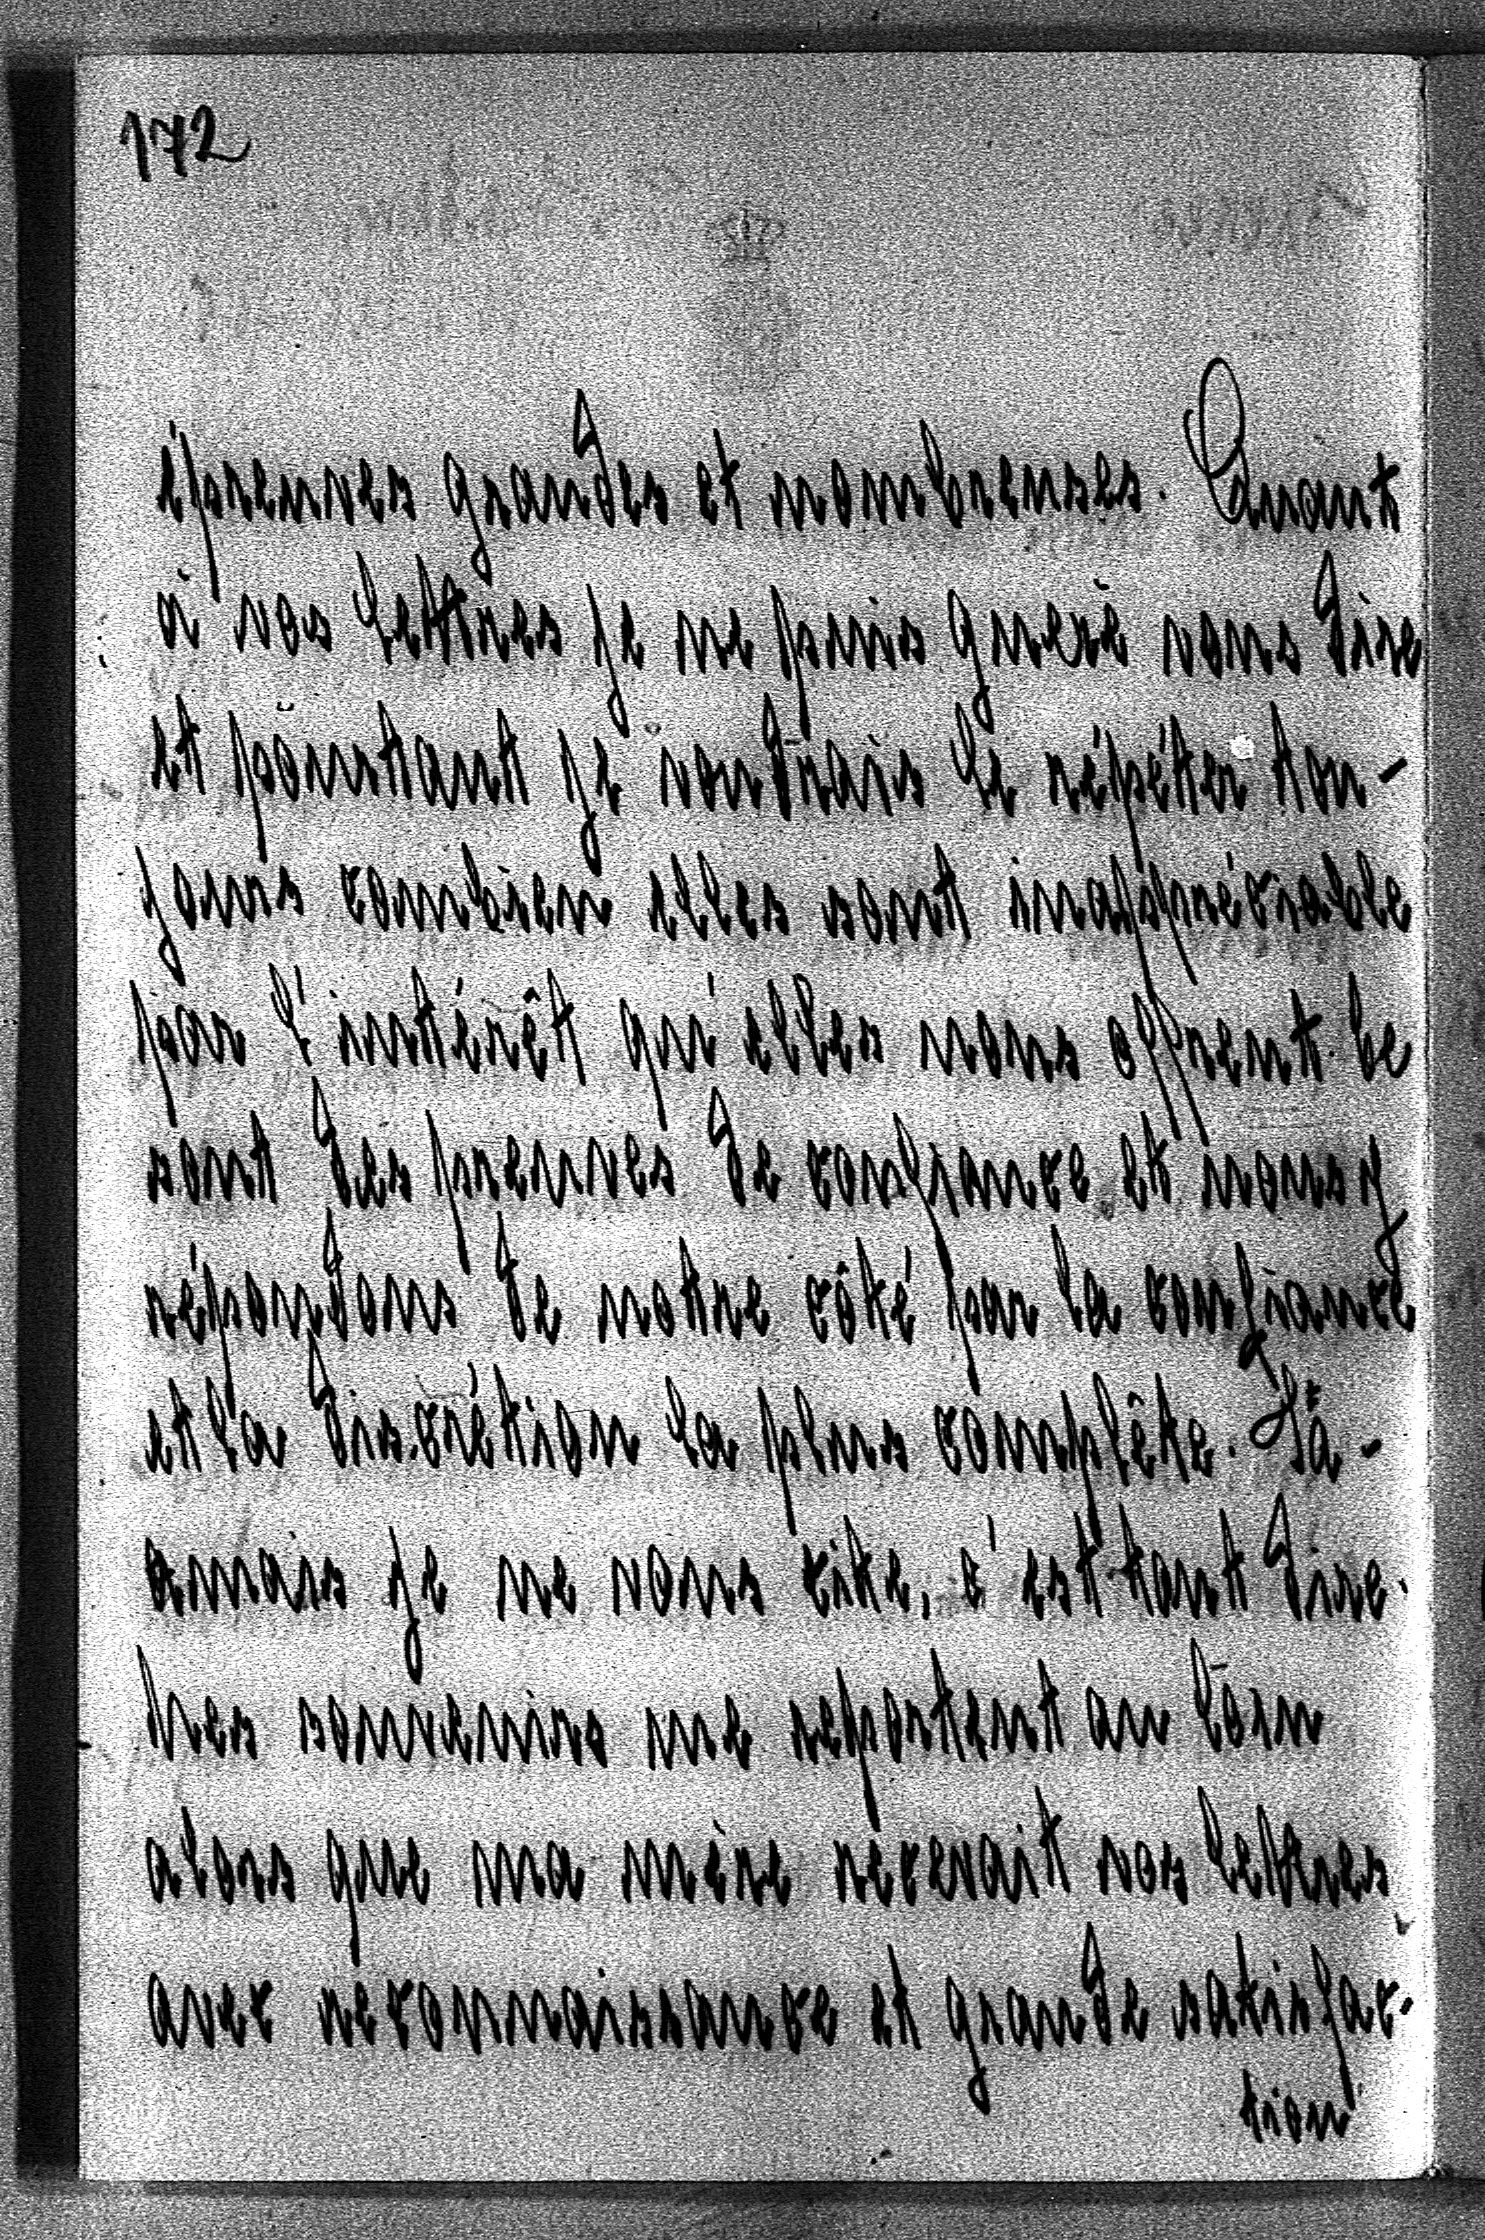 172
épreuves grandes et nombreuses. Quant
à vos lettres je ne puis guerè vous dire
et pourtant je voudrais le répéter tou-
jours combien elles sont inappréciable
par l'intérêt qu'elles nous offrent. Ce
sont des preuves de confiance et nous y
répondons de notre côté par la confiance
et la discrétion la plus complête. Jā-
mais je ne vous cite, c'est tout dire.
Mes souvenirs me reportent au loin
alors que ma mère recevait vos lettres
avec reconnaissance et grande satisfac-
tion